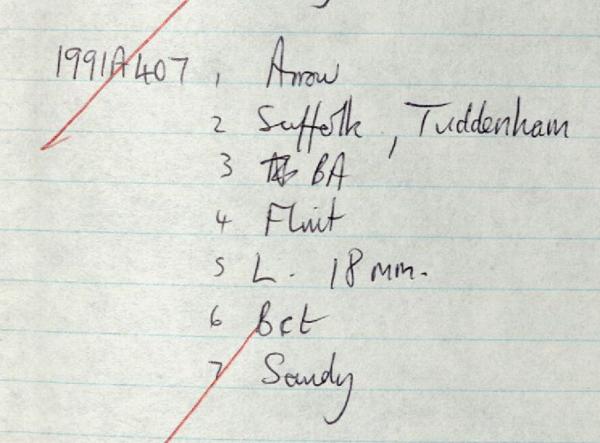 1991A407 1 Arrow
2 Suffolk, Tuddenham
3 BA
4 Flint
5 L. 18 mm.
6 Bct
7 Sandy